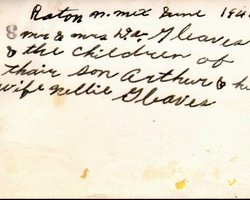 Raton N. Mex June 194
8 mr & mrs Wm. Gleaves
& the children of
thair son Arthur & he
wife nellie Gleaves